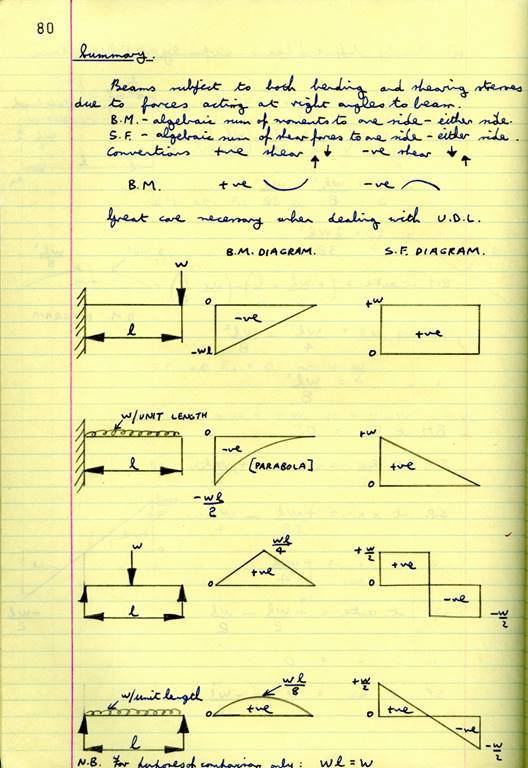 80
Summary.
Beams subject to both bending and shearing stresses
due to forces acting at right angles to beam.
B.M. - algebraic sum of moments to one side - either side.
S.F. - algebraic sum of shear forces to one side - either side.
Conventions +ve shear ↑↓ -ve shear ↓↑
B.M. +ve -ve
Great care necessary when dealing with U.D.L.
B.M. DIAGRAM. S.F. DIAGRAM.
W
0 +W
-ve +ve
l
-Wl 0
W/UNIT LENGTH
0 +W
-ve
l [PARABOLA] +ve
0
-Wl/2
W Wl/4 +W/2
+ve +ve
0 0
l -ve
-W/2
W/unit length Wl/8 +W/2
0 +ve 0 +ve
l -ve
-W/2
N.B. For purposes of comparison only: Wl = W